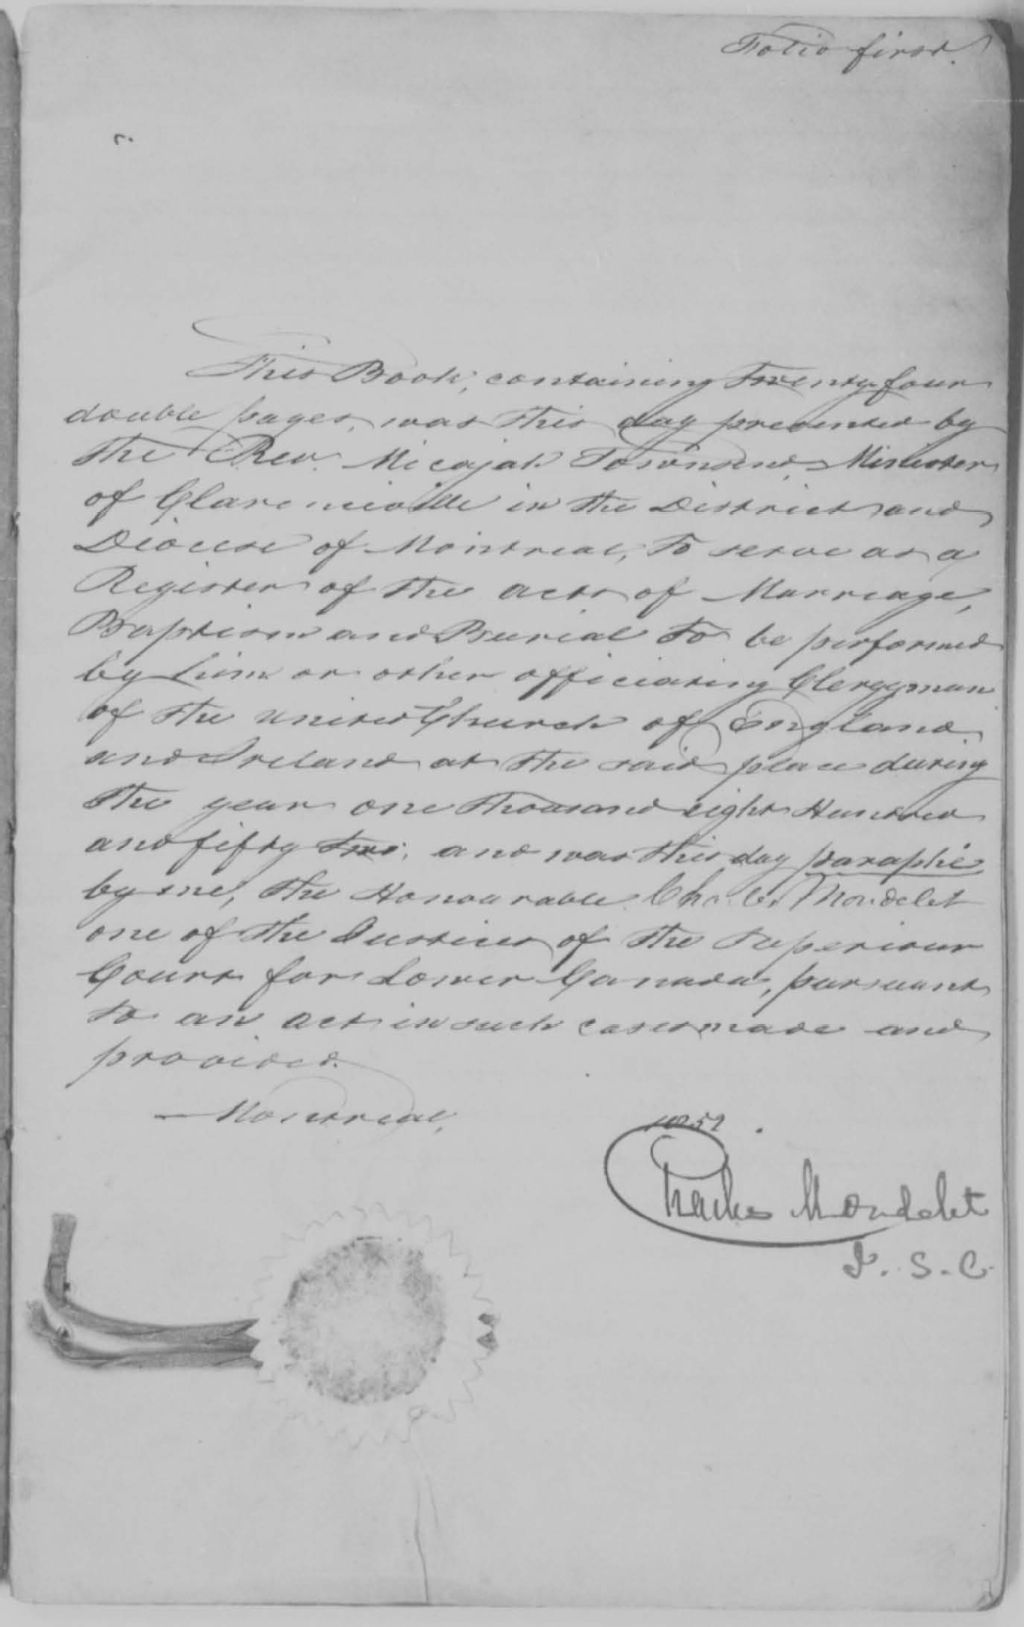 Folio first.
This Book, containing Twenty four
double pages, was this day presented by
the Rev. Micajah Townsend, Minister
of Clarenceville in the District and
Diocese of Montreal, to serve as a
Register of the acts of Marriage,
Baptism and Burial to be performed
by him or other officiating Clergyman
of the united Church of England
and Ireland at the said place during
the year one thousand eight Hundred
and fifty two, and was this day paraphé
by me, the Honourable Charles Mondelet
one of the Justices of the Superiour
Court for Lower Canada, pursuant
to an act in such cases made and
provided.
Montreal,
Charles Mondelet
J. S. C.